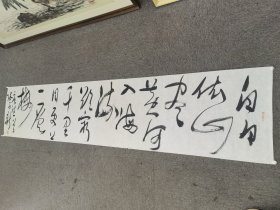 白日
依山
盡
黄河
入海
流
欲窮
千里
目更上
一層
樓